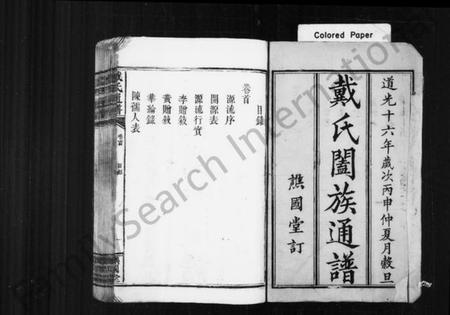 Colored Paper
道光十六年歲次丙申仲夏月穀旦
戴氏闔族通譜
譙國堂訂
目錄
卷首
源流序
開源表
源流行實
李贈敘
黃贈敘
FamilySearch International